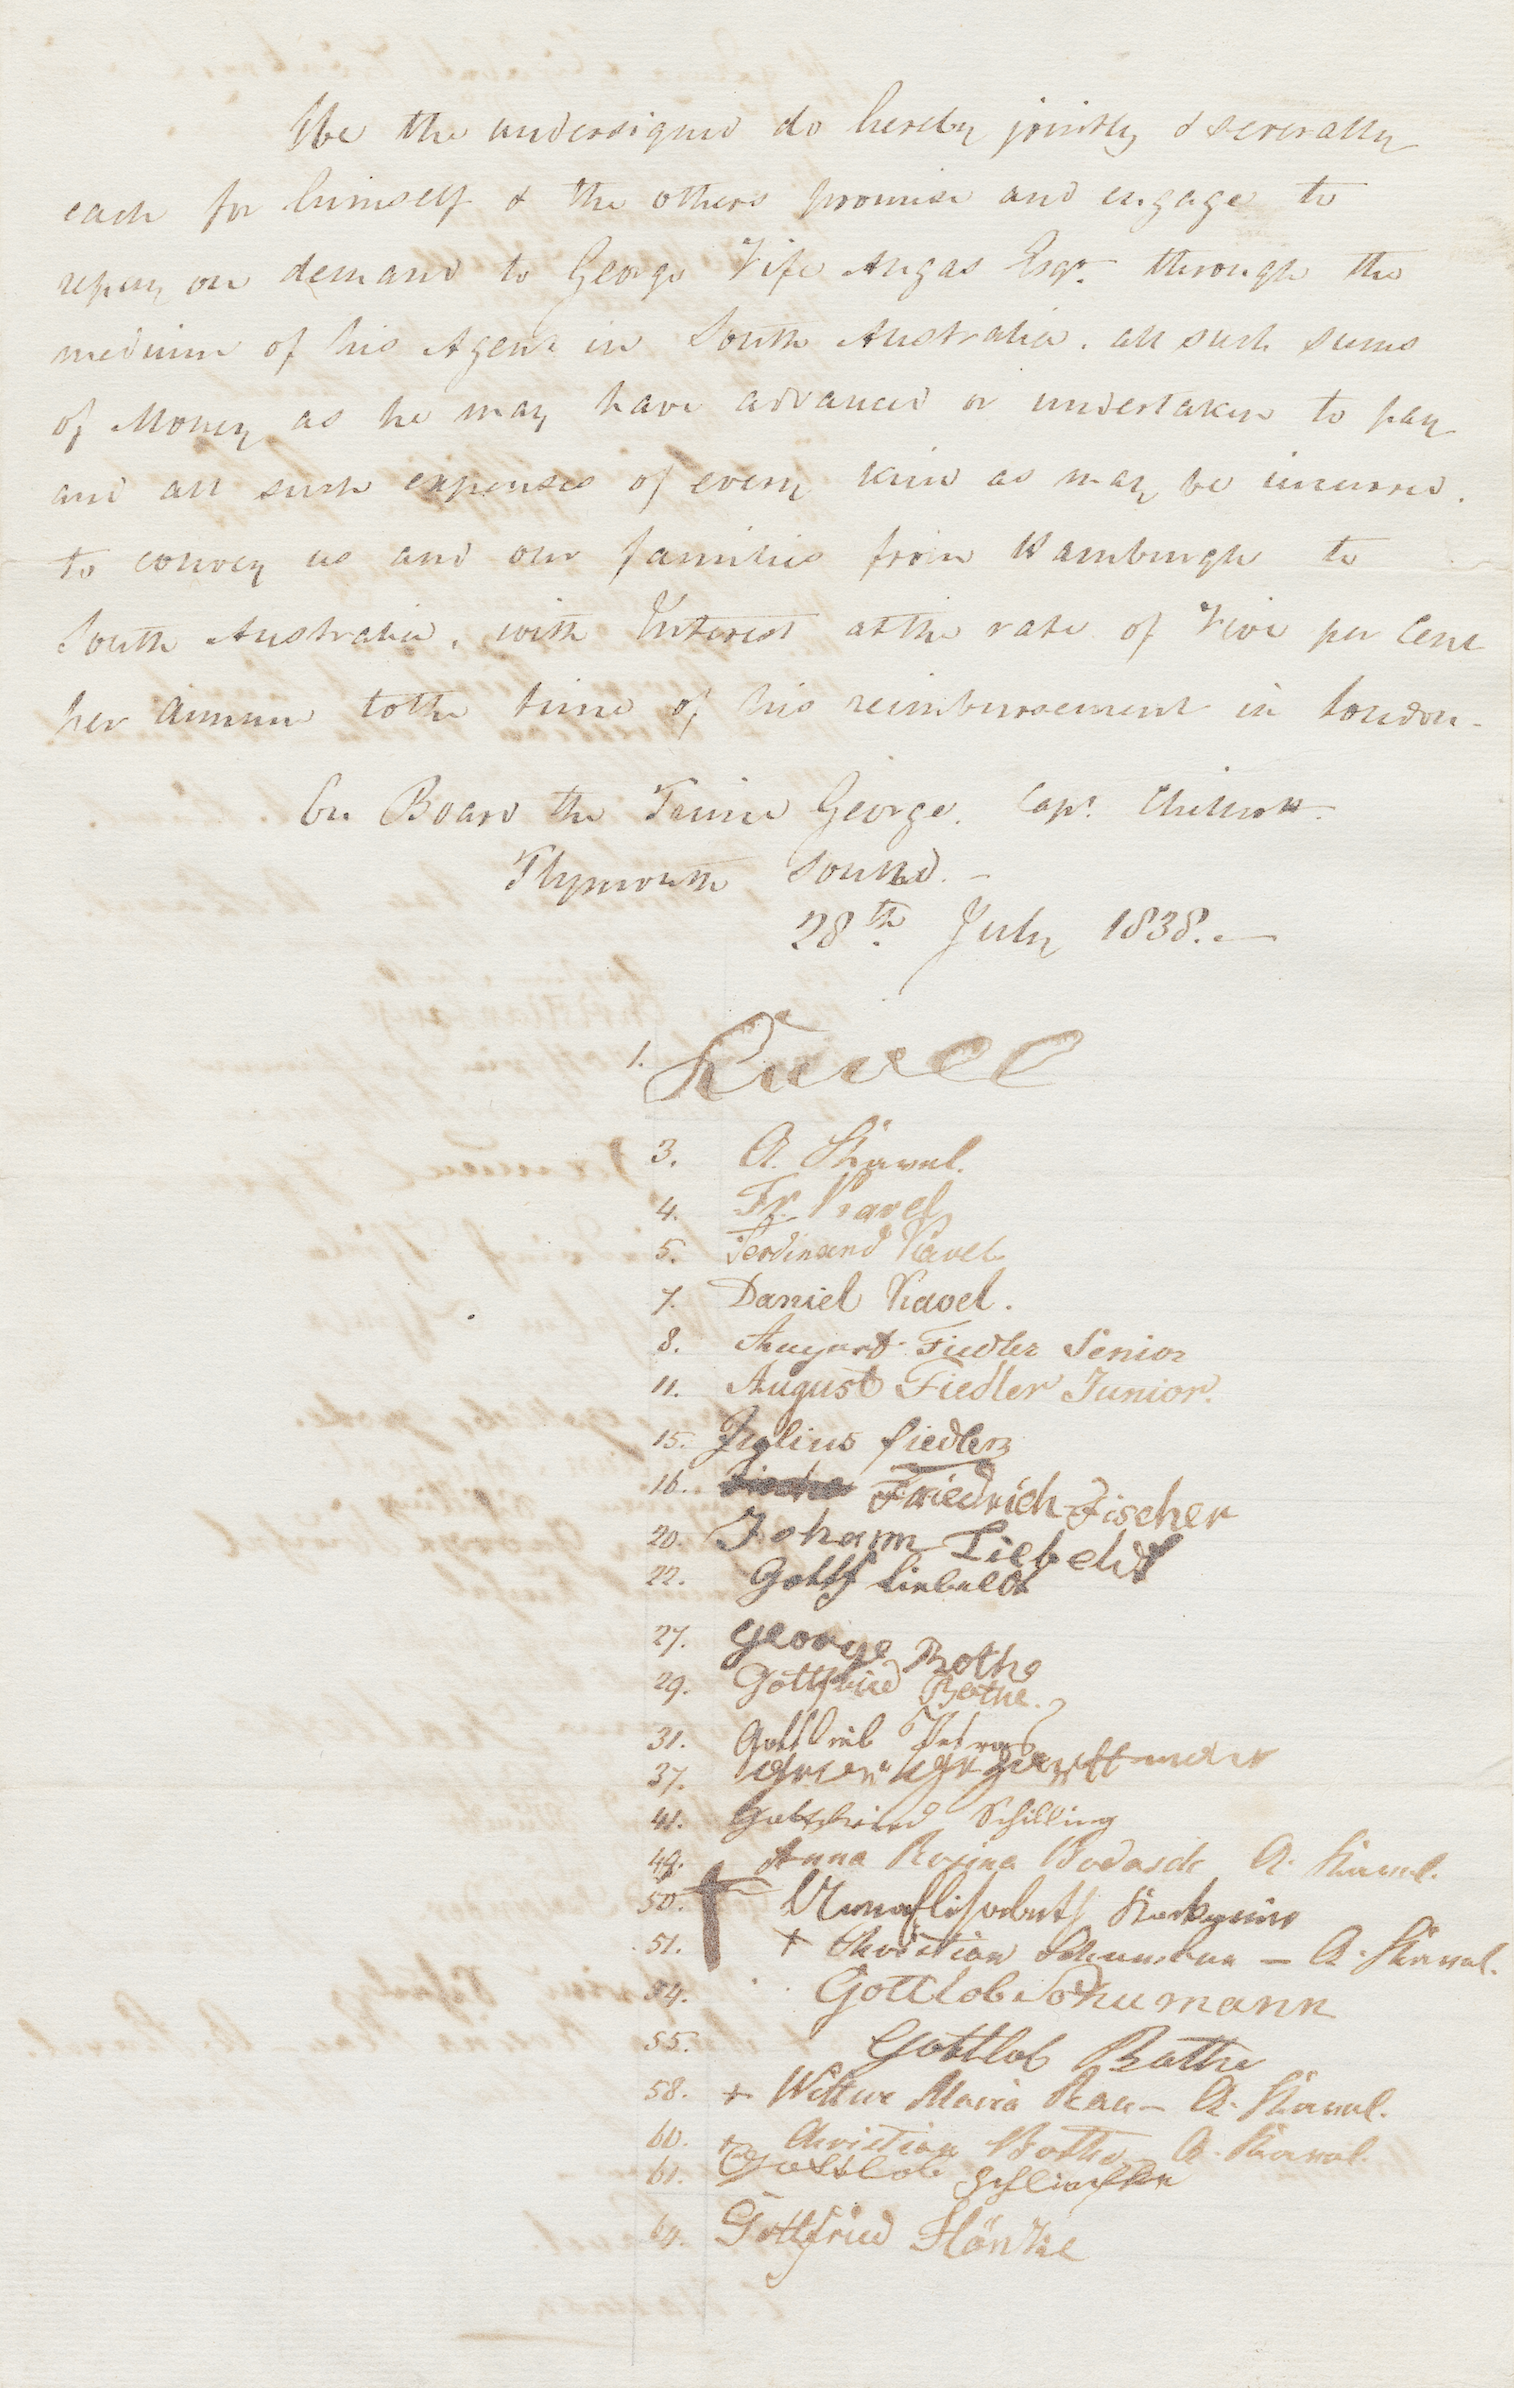 We the undersigned do hereby jointly & severally
each for himself & the others promise and engage to
repay on demand to George Fife Angas Esqr. through the
medium of his Agent in South Australia. all such sums
of Money as he may have advanced or undertaken to pay
and all such expenses of every kind as may be incurred.
to convey us and our families from Hamburgh to
South Australia, with Interest at the rate of Five per Cent
per Annum to the time of his reimbursement in London.
On Board the Prince George. Capt. Chilcott.
Plymouth Sound. -
28th. July 1838. —
1. Kavel
3. A. Kavel.
4. Fr. Kavel
5. Ferdinand Kavel
7. Daniel Kavel.
8. August Fiedler Senior
11. August Fiedler Junior.
15. Julius fiedler
16. Friedrich Fischer
20. Johann Liebeldt
22. Gottf Liebeldt
27. george Bothe
29. Gottfried Bothe.
31. Gottlieb Petras
37.
41. Gottfried Schilling
49. Anna Rosina Bodasch A. Kavel.
50.
51. + Christian Schumann — A. Kavel.
54. Gottlob Schumann
55. Gottlob Bothe
58. + Wittwe Maria Rau — A. Kavel.
60. + Christian Bothe A. Kavel.
61. Gottlob
64. Gottfried Hönke